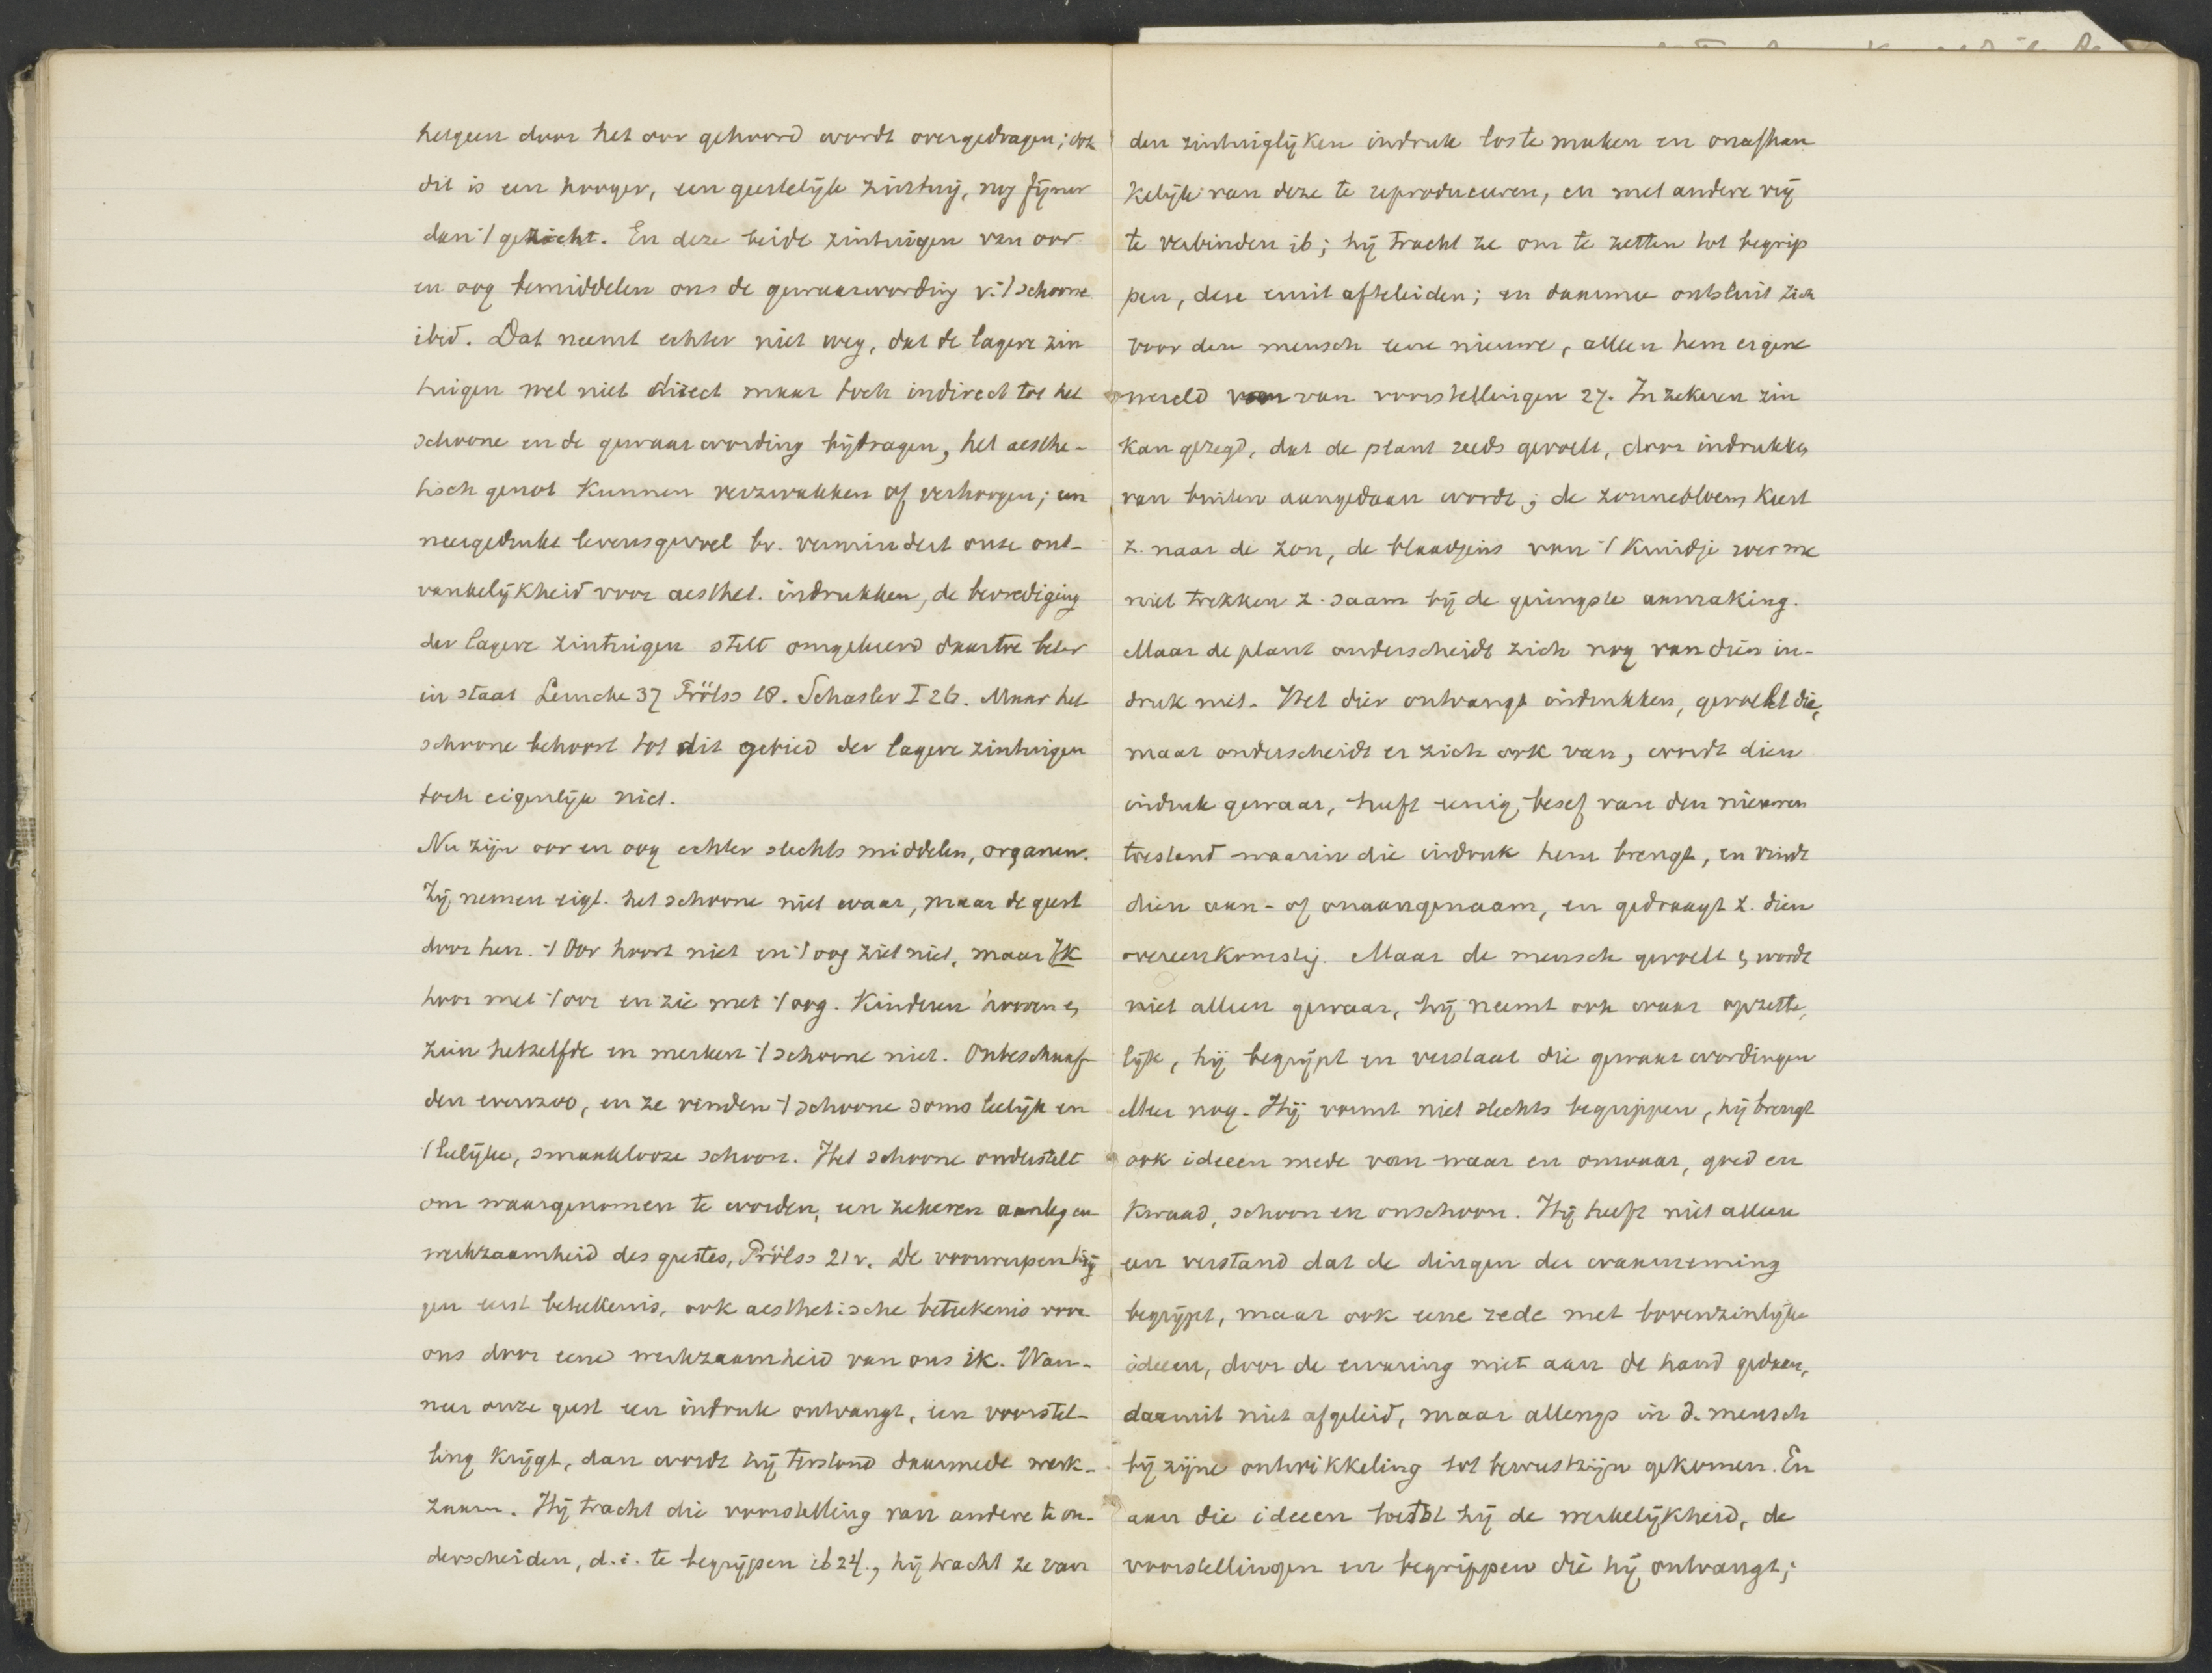 hetgeen door het oor gehoord wordt overgedragen; ook
dit is een hooger, een geestelijk zintuig, nog fijner
dan 't gezicht. En deze beide zintuigen van oor
en oog bemiddelen ons de gewaarwording v. 't schoone
ibid. Dat neemt echter niet weg, dat de lagere zin
tuigen wel niet direct maar toch indirect tot het
schoone en de gewaarwording bijdragen, het aesthe-
tisch genot kunnen verzwakken of verhoogen; een
neergedrukt levensgevoel bv. vermindert onze ont-
vankelijkheid voor aesthet. indrukken, de bevrediging
der lagere zintuigen stelt omgekeerd daartoe beter
in staat Lemcke 37 Prölss 18. Schasler I 26. Maar het
schoone behoort tot dit gebied der lagere zintuigen
toch eigenlijk niet.
Nu zijn oor en oog echter slechts middelen, organen.
Zij nemen eigl. het schoone niet waar, maar de geest
door hen. 't Oor hoort niet en 't oog ziet niet, maar Ik
hoor met 't oor en zie met 't oog. Kinderen hooren en
zien hetzelfde en merken 't schoone niet. Onbeschaaf
den evenzoo, en ze vinden 't schoone soms leelijk en
't leelijke, smaaklooze schoon. Het schoone onderstelt
om waargenomen te worden, een zekeren aanleg en
werkzaamheid des geestes, Prölss 21v. De voorwerpen krij
gen eerst beteekenis, ook aesthetische beteekenis voor
ons door eene werkzaamheid van ons ik. Wan-
neer onze geest een indruk ontvangt, een voorstel-
ling krijgt, dan wordt hij terstond daarmede werk-
zaam. Hij tracht die voorstelling van andere te on-
derscheiden, d.i. te begrijpen ib 24., hij tracht ze van
den zintuiglijken indruk los te maken en onafhan
kelijk van deze te reproduceeren, en met andere vrij
te verbinden ib; hij tracht ze om te zetten tot begrip
pen, deze eruit afteleiden; en daarmee ontsluit zich
voor den mensch eene nieuwe, alleen hem eigene
wereld van voorstellingen 27. In zekeren zin
kan gezegd, dat de plant reeds gevoelt, door indrukken
van buiten aangedaan wordt; de zonnebloem keert
z. naar de zon, de blaadjes van 't kruidje roer me
niet trekken z. saam bij de geringste aanraking.
Maar de plant onderscheidt zich nog van dien in-
druk niet. Het dier ontvangt indrukken, gevoelt die,
maar onderscheidt er zich ook van, wordt dien
indruk gewaar, heeft eenig besef van den nieuwen
toestand waarin die indruk hem brengt, en vindt
dien aan- of onaangenaam, en gedraagt z. dien
overeenkomstig. Maar de mensch gevoelt en wordt
niet alleen gewaar, hij neemt ook waar opzette,
lijk, hij begrijpt en verstaat die gewaarwordingen
Meer nog. Hij vormt niet slechts begrippen, hij brengt
ook ideeen mede van waar en onwaar, goed en
kwaad, schoon en onschoon. Hij heeft niet alleen
een verstand dat de dingen der waarneming
begrijpt, maar ook eene rede met bovenzinlijke
ideeen, door de ervaring niet aan de hand gedaan,
daaruit niet afgeleid, maar allengs in d. mensch
bij zijne ontwikkeling tot bewustzijn gekomen. En
aan die ideeen toetst hij de werkelijkheid, de
voorstellingen en begrippen die hij ontvangt;